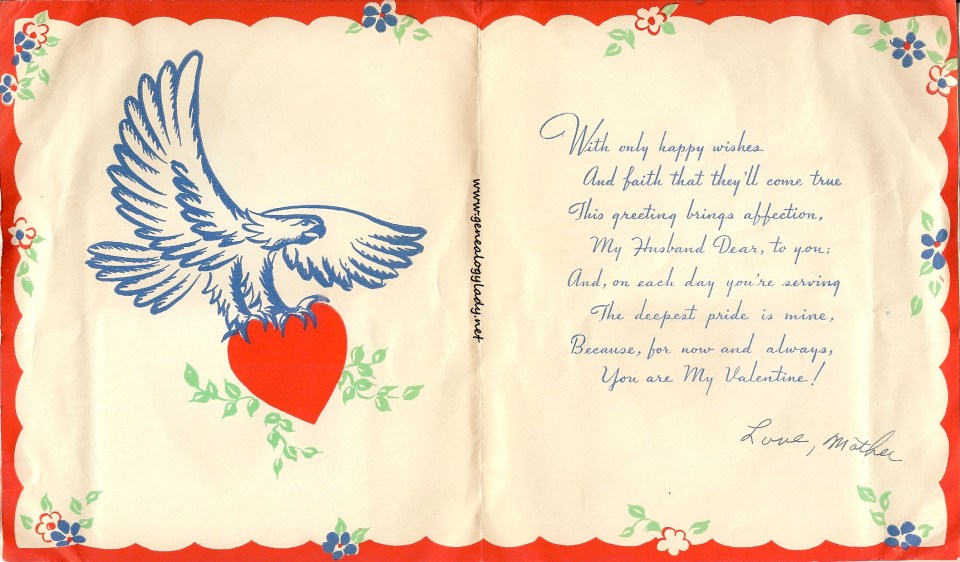 www.genealogylady.net
With only happy wishes
And faith that they'll come true
This greeting brings affection,
My Husband Dear, to you;
And, on each day you're serving
The deepest pride is mine,
Because, for now and always,
You are My Valentine!
Love, Mother